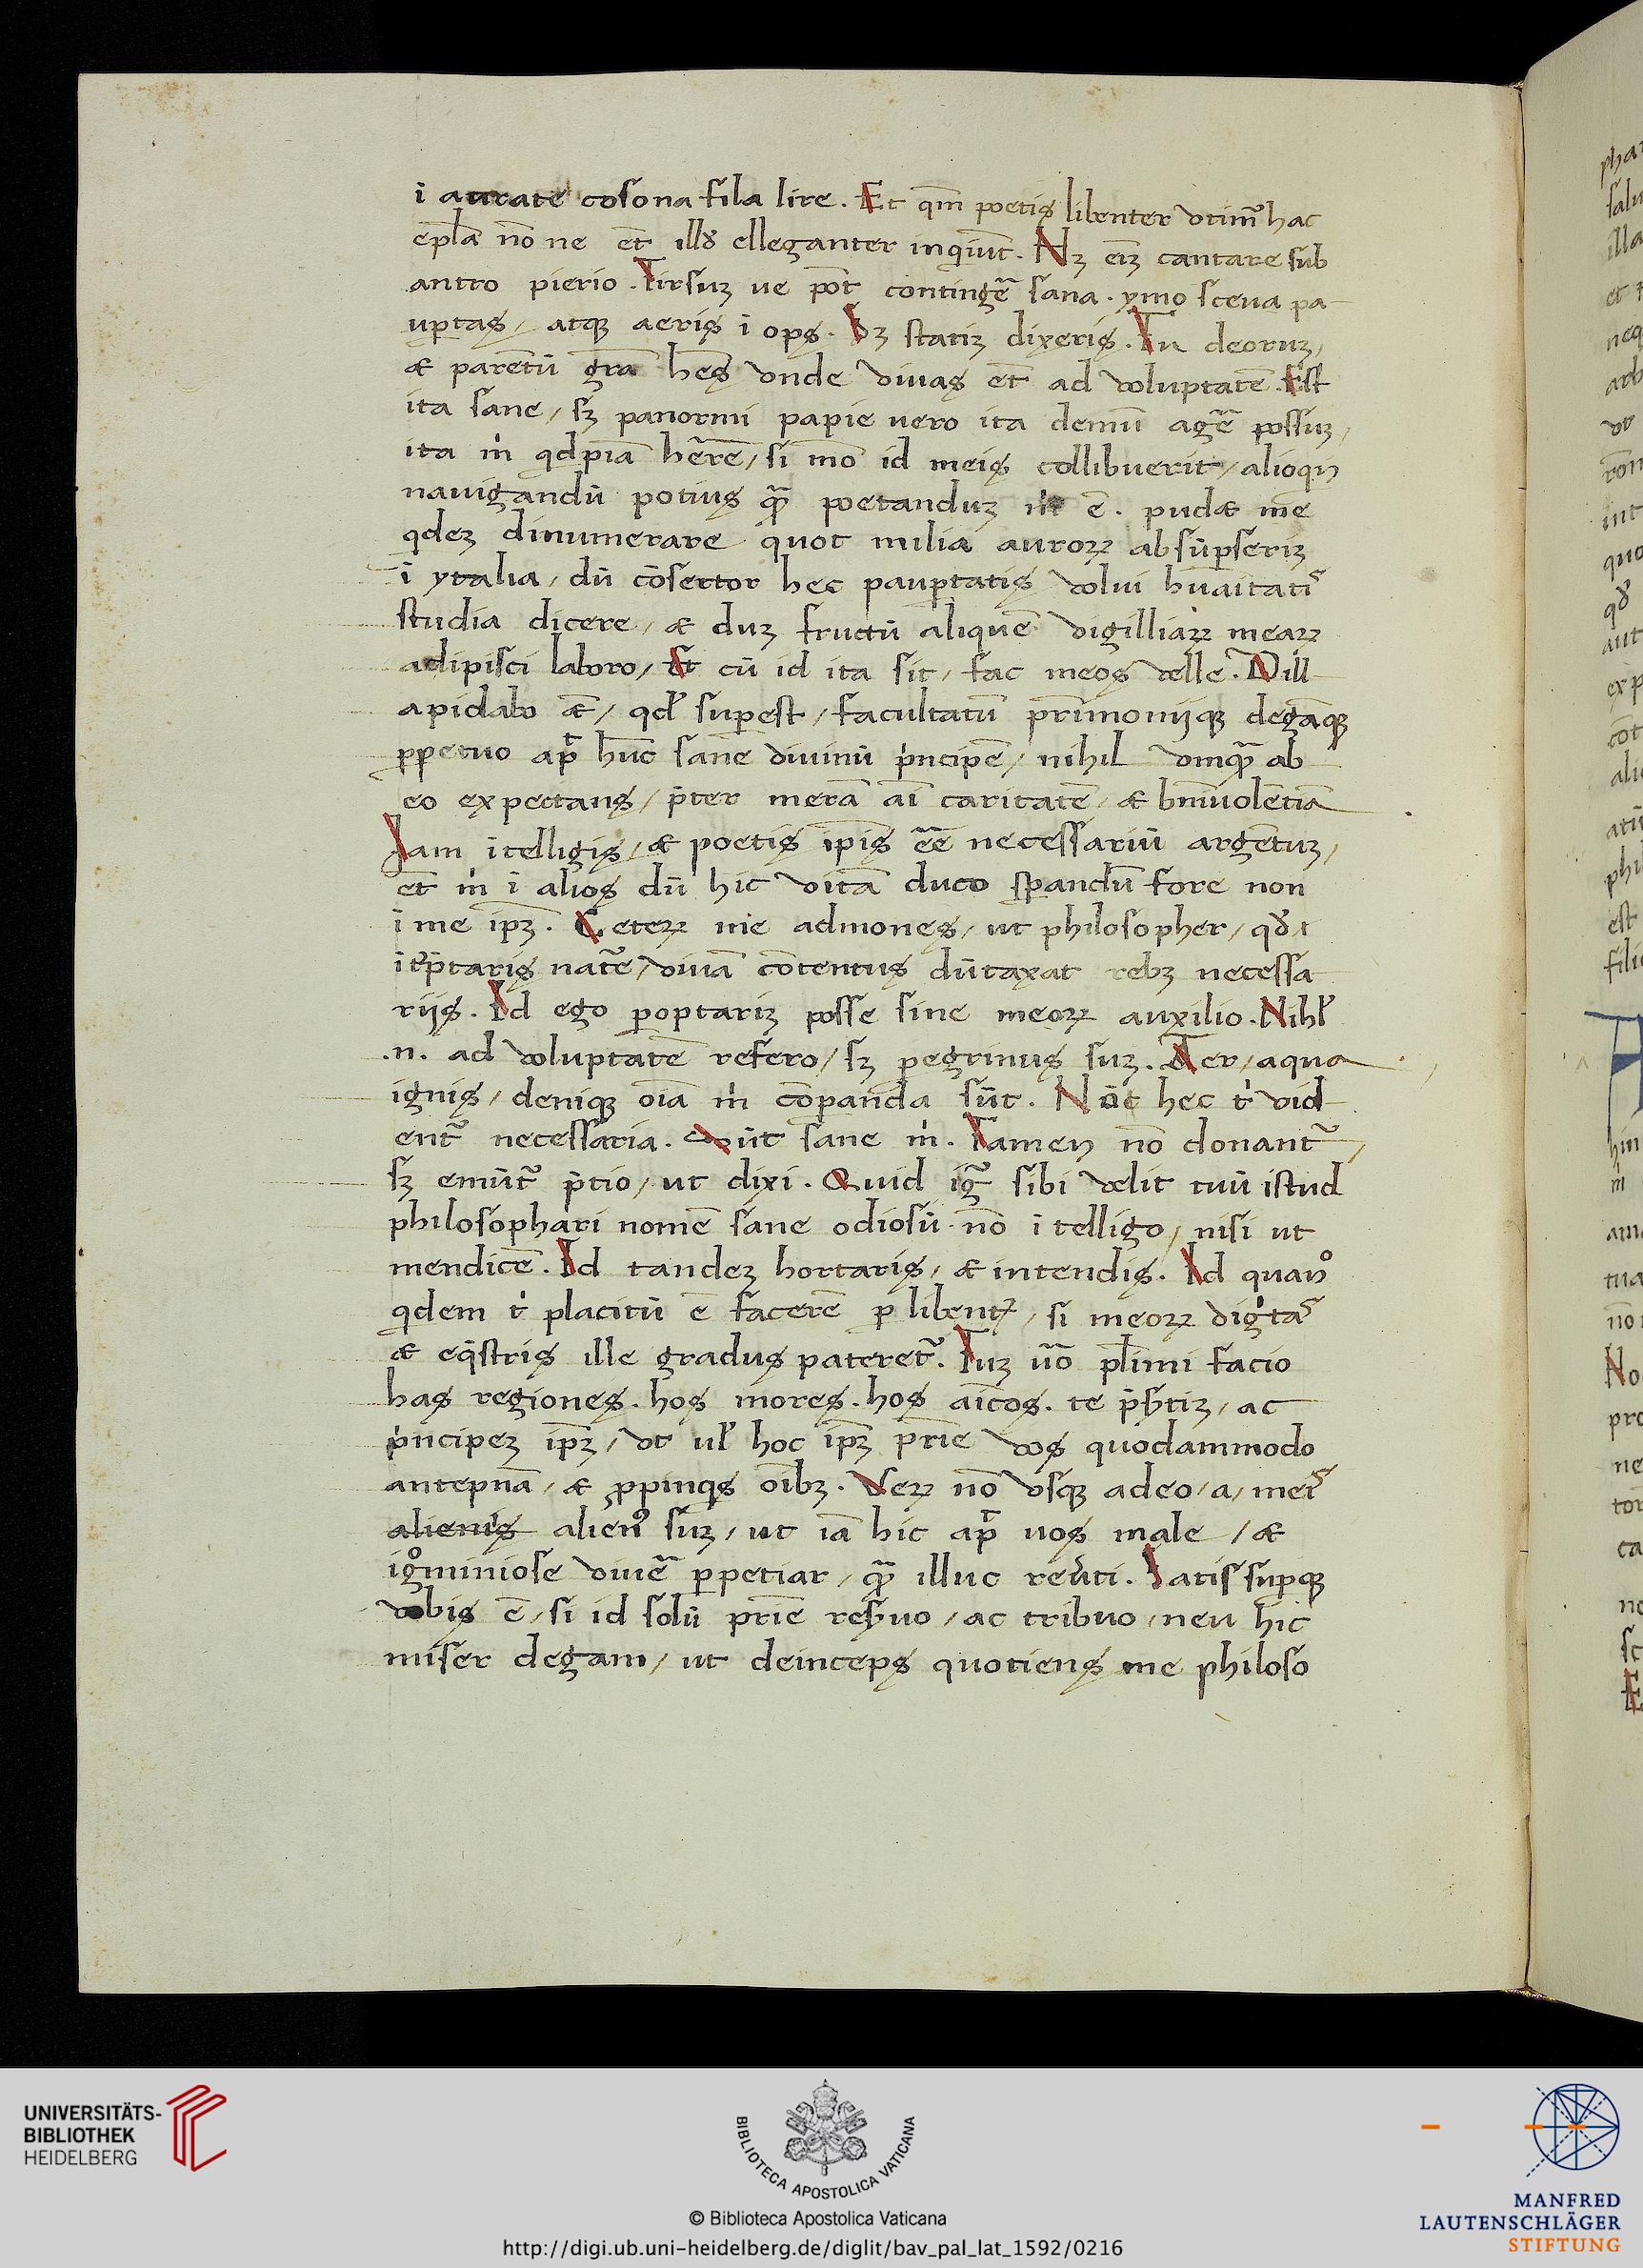 i aurate cosona fila lire. Et qm̄ poetis libenter vtim̃ hac
epl̄a nōne et̄ illꝺ̾ elleganter inqiūt. Nꝫ eīꝫ cantare sub
antro pierio. Tirsuꝫ ve pōt contingẽ sana. ymo sceua pa-
up̱tas, atqꝫ aeris i ops. Sꝫ statiꝫ dixeris. Tu deoruꝫ,
& parētū grā hēs vnde viuas et̄ ad voluptatē. Est
ita sane, sꝫ panormi papie vero ita demū agẽ possuꝫ,
ita m̍ qdpiā hẽrē, si mō id meis collibuerit, alioqn
nauigandū potius qꝫ̃ poetanduꝫ m̍ ē. pud& me
qdeꝫ dinumerare quot milia auroꝝ absūpseriꝫ
i ytalia, dū cōsector hec paup̱tatis volui hūaitatis
studia dicere, & duꝫ fructū aliquē vigilliaꝝ meaꝝ
adipisci laboro, Et cū id ita sit, fac meos velle. Dill
apidabo &̄, qd̾ sup̱est, facultatum pr̄imoniiqꝫ degāqꝫ
ꝓpetuo ap̃ hūc sane diuinū p̍ncipē, nihil vnqꝫ̃ ab
eo expectans, p̄ter merā aī caritatē, & bn̄iuolētiā
Iam itelligis, & poetis ip̄is ẽē necessariū argētuꝫ,
et̄ m̍ i alios dū hic vitā duco sp̱andū fore non
i me ip̄ꝫ. Ceteꝝ me admones, ut philosopher, qꝺ̾
it̾p̄taris natẽ, viuā cōtentus dūtaxat rebꝫ necessa
riis. Id ego p̱optariꝫ posse sine meoꝝ auxilio. Nihl̾
.n. ad voluptatē refero, sꝫ p̱egrinus suꝫ. Aer, aqua
ignis, deniqꝫ oīa m̍ cōpanda sūt. Nūc hec t̍ vid
ent᷑ necessaria. Sūt sane m̍. Tamen nō donant᷑,
sꝫ emūt᷑ p̄tio, ut dixi. Quid ig᷑ sibi velit tuū istud
philosophari nomē sane odiosū nō itelligo, nisi ut
mendicē. Id tandeꝫ hortaris, & intendis. Id quanº
qdem t̍ placitū ē facerē p̱libent̾, si meoꝝ dig̍tas
& eq̍stris ille gradus pateret᷑. Tuꝫ ūō pl̄imi facio
has regiones. hos mores. hos aīcos. te p̄sẜtiꝫ, ac
p̍ncipeꝫ ip̄ꝫ, vt ul̾ hoc ip̄ꝫ pr̄ie vos quodammodo
antepnā, & ꝓpinq̍s oībꝫ. Veꝝ nō vsqꝫ adeo, a, meis
alienis alienꝰ suꝫ, ut iā hic ap̃ uos male, &
igºminiose viuẽ p̱petiar, qꝫ̃ illuc reũti. Satis sup̱qꝫ
vobis ē, si id solū pr̄ie resẜuo, ac tribuo, neu hic
miser degam, ut deinceps quotiens me philoso
UNIVERSITÄTS-
BIBLIOTHEK
HEIDELBERG
BIBLIOTECA APOSTOLICA VATICANA
© Biblioteca Apostolica Vaticana
http://digi.ub.uni-heidelberg.de/diglit/bav_pal_lat_1592/0216
MANFRED
LAUTENSCHLÄGER
STIFTUNG